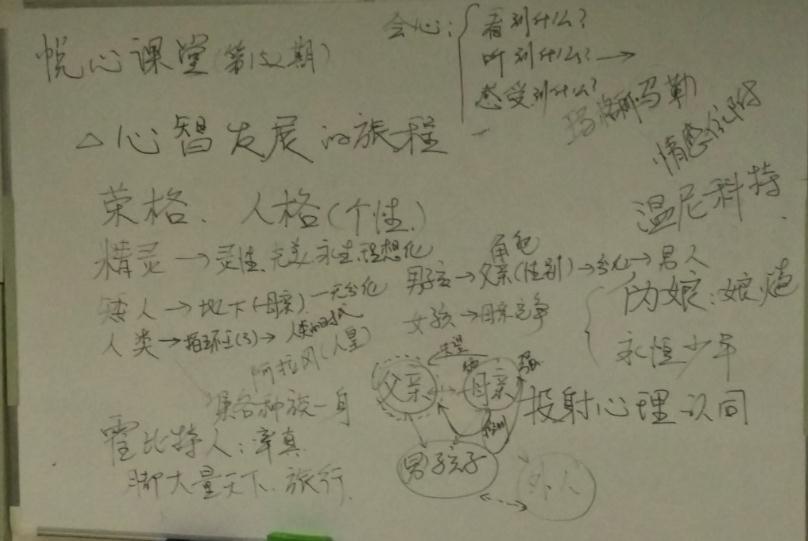 悦心课堂(第152期)
会心:
看到什么?
听到什么?→
感受到什么?
玛格丽特马勒
△心智发展的旅程
情感
温尼科特
荣格、人格(个性)
精灵→灵性、完美、永生、理想化
角色
男孩→父亲(性别)→分化→男人
矮人→地下(母亲)—无分化
女孩→母亲竞争
伪娘:娘炮
人类→指环王(3)→人类的时代
永恒少年
阿拉贡(人皇)
集各种族一身
父亲
母亲
投射心理认同
霍比特人:率真
脚大量天下、旅行
男孩子
外人